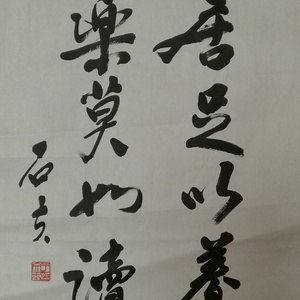 居足以養
樂莫如讀
石